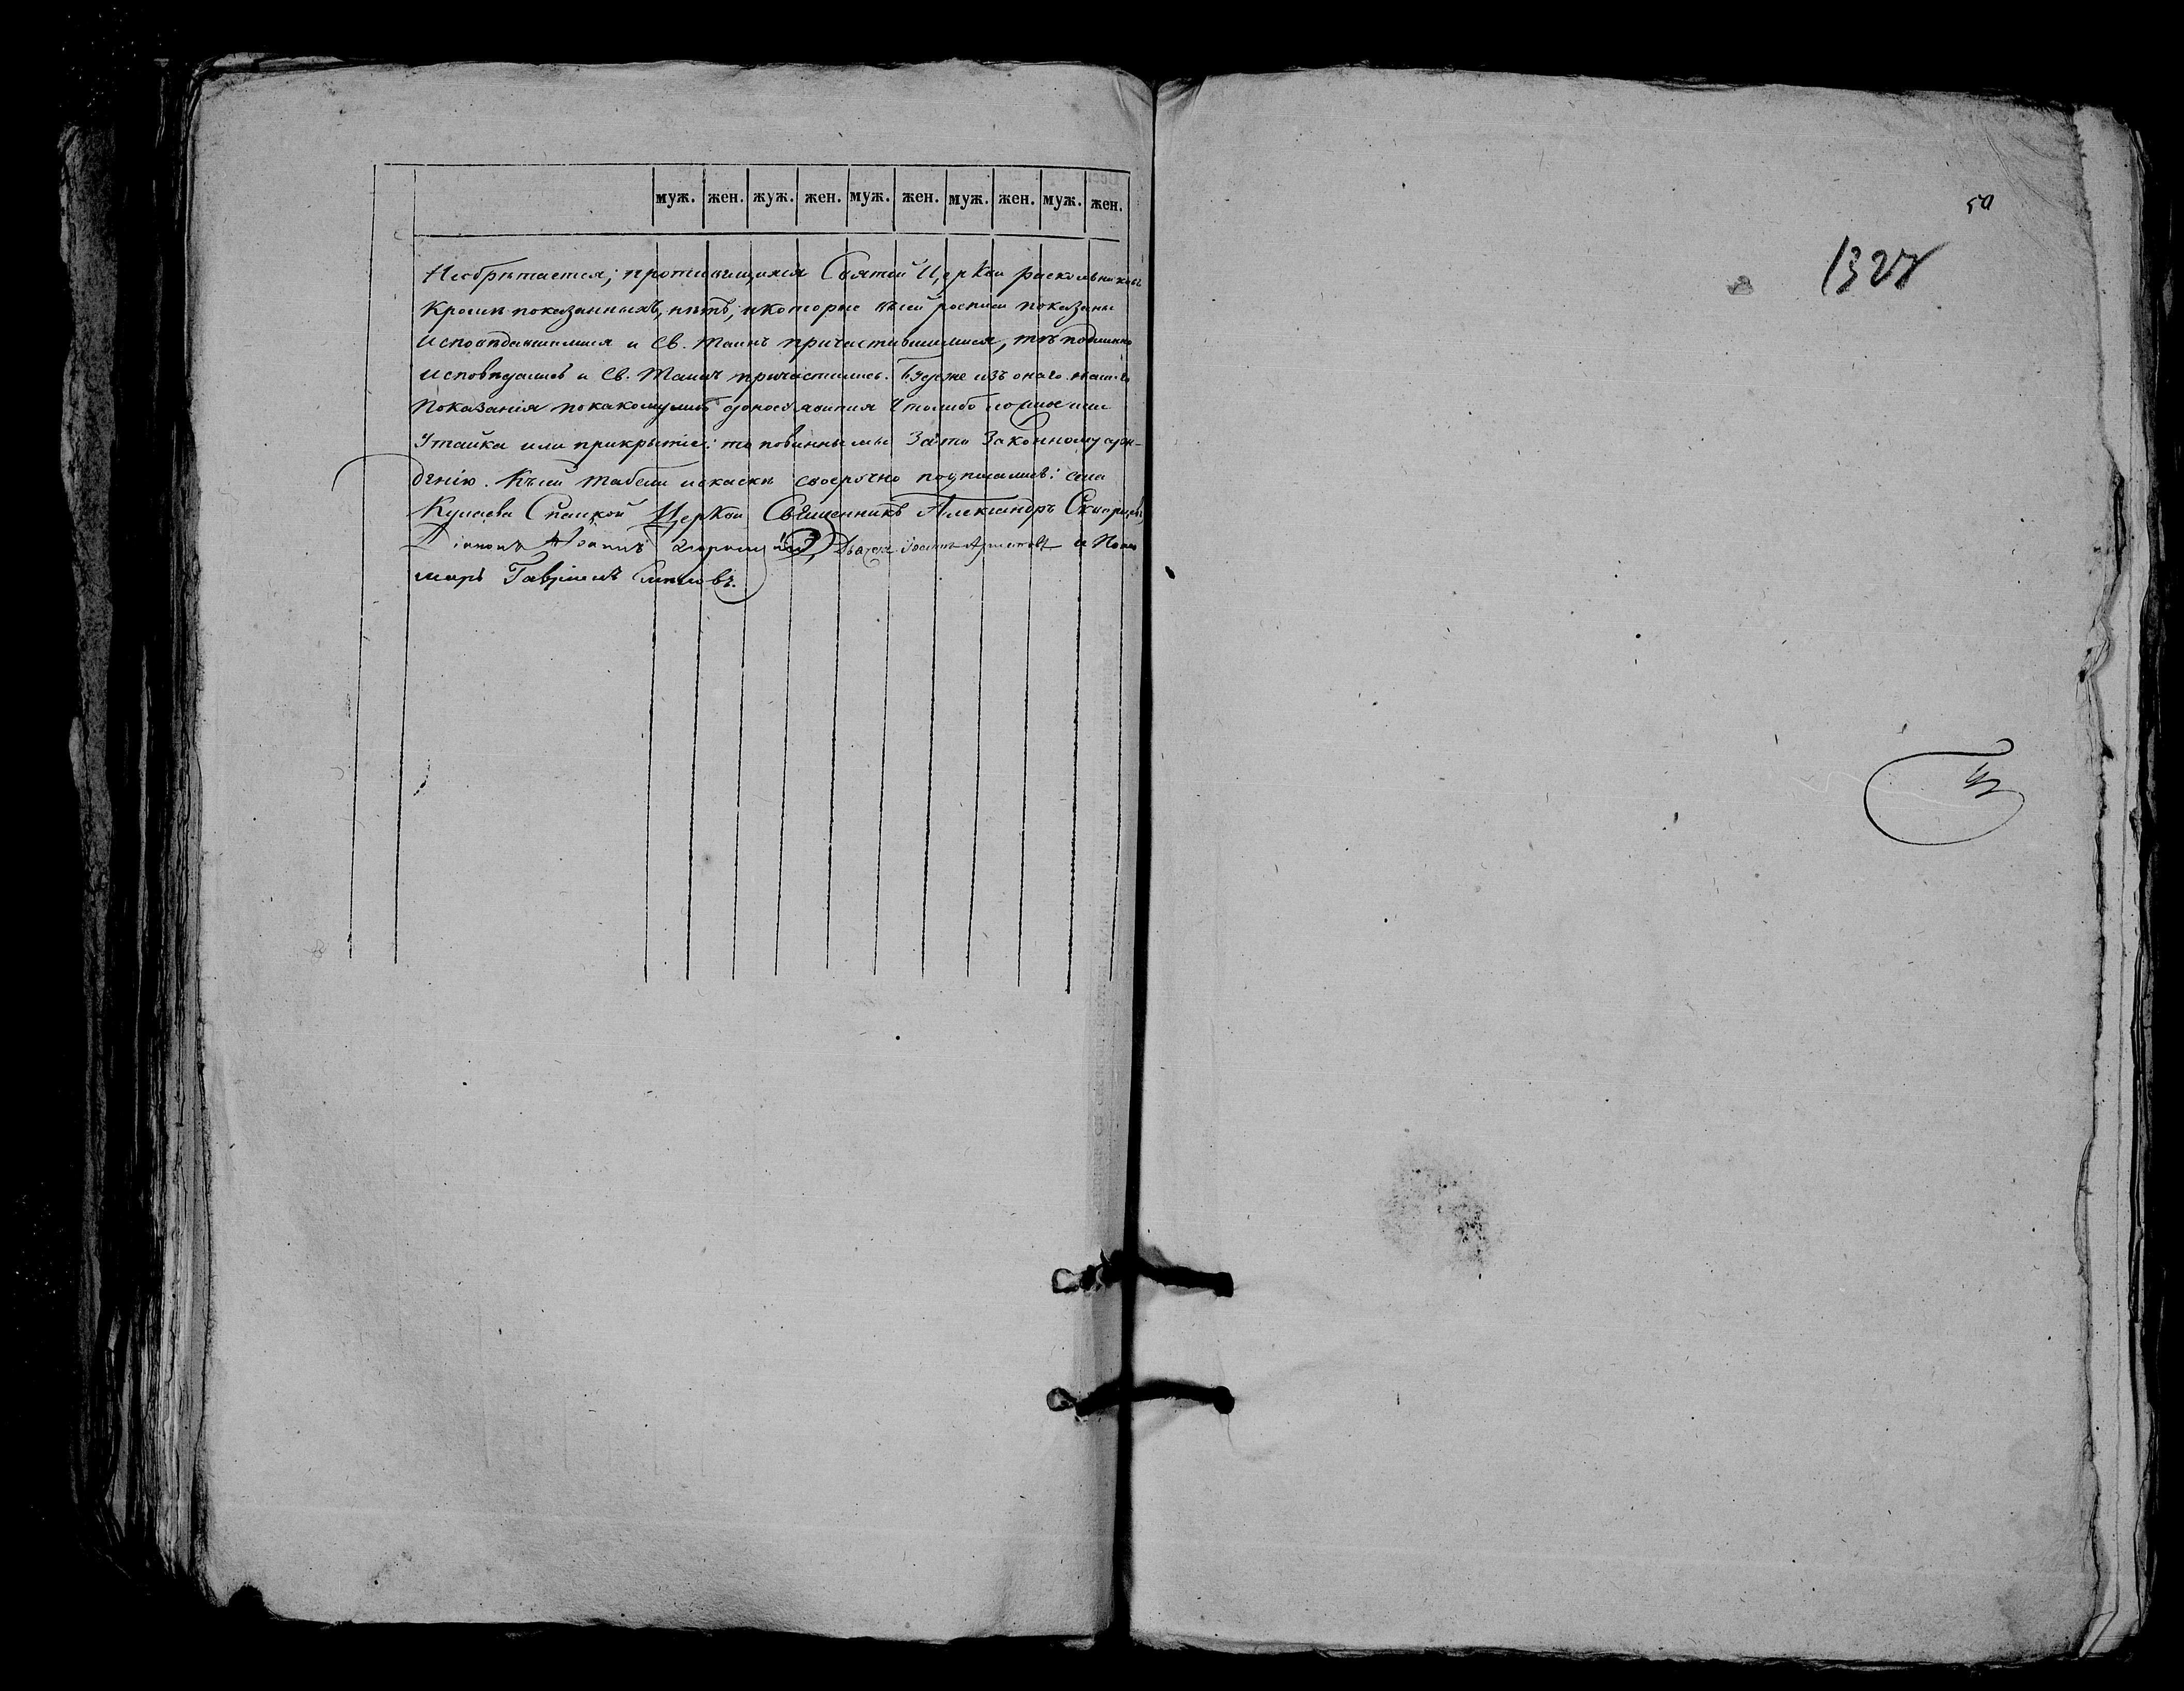 муж. жен. жуж. жен. муж. жен. муж. жен. муж. жен.
Необрѣтается; противящихся Святой Церкви раскольниковъ
Кромѣ показанныхъ, нѣтъ, и которые въ сей росписи показаны
исповѣдавшимися и Св. Таинъ причастившимися, тѣ подлинно
исповѣдались и Св. Таинъ причастились. Буде же изъ онаго нашего
Показанія по какому либо доносу явится что либо ложное или
Утайка или прикрытіе: то повинны мы за то Законному суж-
денію. Къ сей табели и скаскѣ своеручно подписались: села
Спаской Церкви Священникъ Александръ
Діаконъ Іоаннъ Дьячекъ Іоаннъ и Поно
марь Гавріилъ
50
1327